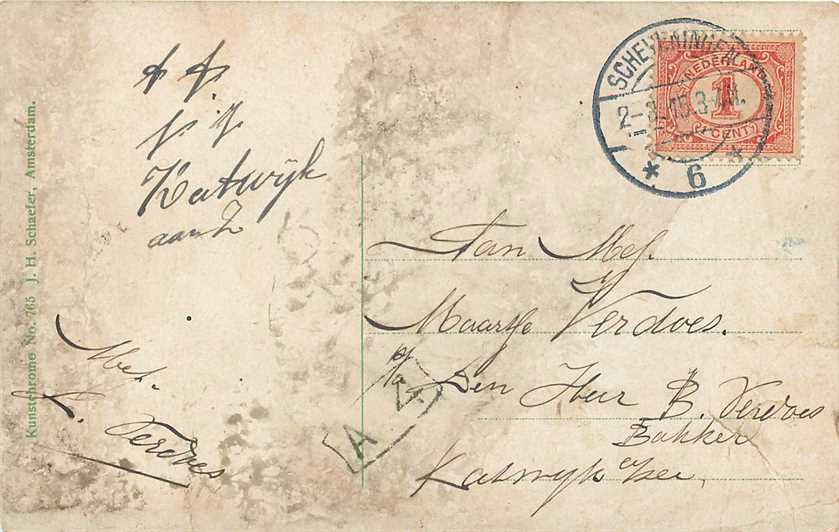 Katwijk
aan Z
Mej.
J. Verdoes
Kunstchromo No. 765 J. H. Schaefer, Amsterdam.
SCHEVENINGEN
6
NEDERLAND
1
CENT
Aan Mej.
Maartje Verdoes.
p/a Den Heer B. Verdoes
Bakker
Katwijk a/zee